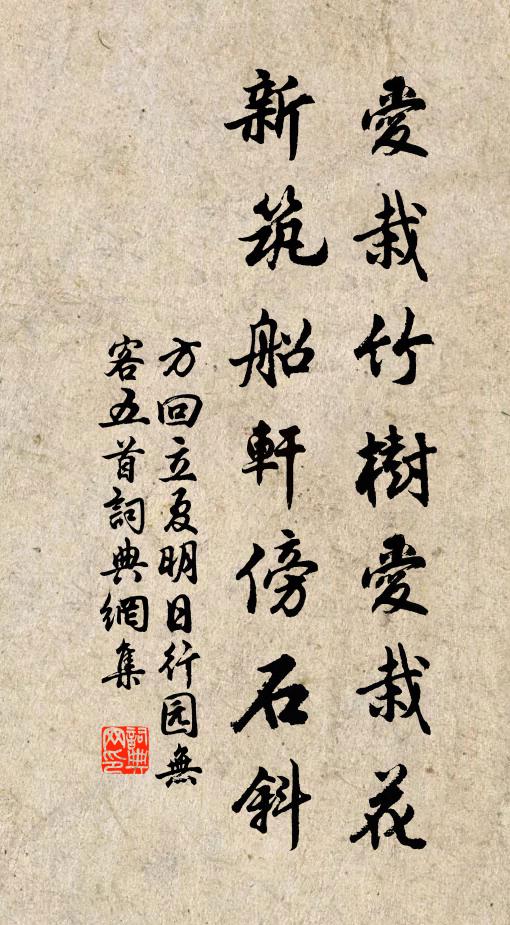 愛栽竹樹愛栽花
新筑船軒傍石斜
方回立夏明日行园無
客五首詞典網集
詞典
网印